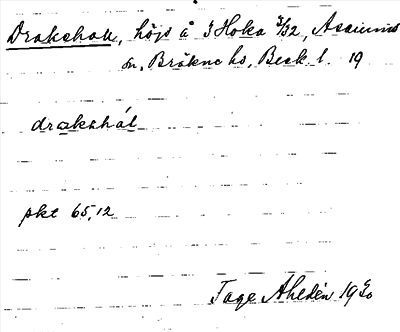 Drakehall, höjd å 3 Hoka 3/32, Asarums
sn, Bräkne hd, Blek. l. 19
drakahál
pkt 65,12
Tage Ahldén 1930